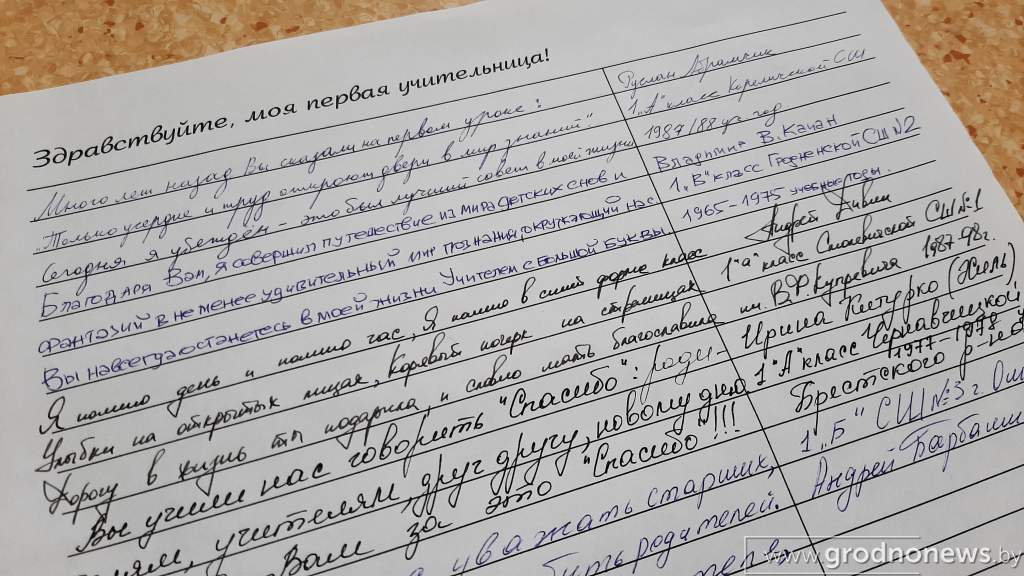 Здравствуйте, моя первая учительница!
Много лет назад Вы сказали на первом уроке:
„Только усердие и труд откроют двери в мир знаний"
Сегодня я убеждён - это был лучший совет в моей жизни
Руслан
1 „А" класс Кореличской СШ
1987/88 уч. год
Благодаря Вам, я совершил путешествие из мира детских снов и
фантазий в не менее удивительный мир познания, окружающий нас
Вы навсегда останетесь в моей жизни Учителем с большой буквы
Владлина В. Качан
1 „В" класс Гродненской СШ №2
1965-1975 учебные годы.
Я помню день и помню час, Я помню в синей форме класс
Улыбки на открытых лицах, Корявый почерк на страницах
Дорогу в жизнь ты подарила, и словно мать благословила
Андрей Дивин
1 "а" класс Смолевичской СШ №1
им. В.Ф. Купревича 1987-98г.
Вы учили нас говорить "Спасибо": роди-
учителям, друг другу, новому дню
Вам за это "Спасибо"!!!
Ирина Кетурко (Жиль)
1 "А" класс Чернавчицкой
1977-1978
Брестского р-на
уважать старших,
родителей.
1 „Б" СШ №3 г.
Андрей
www.grodnonews.by